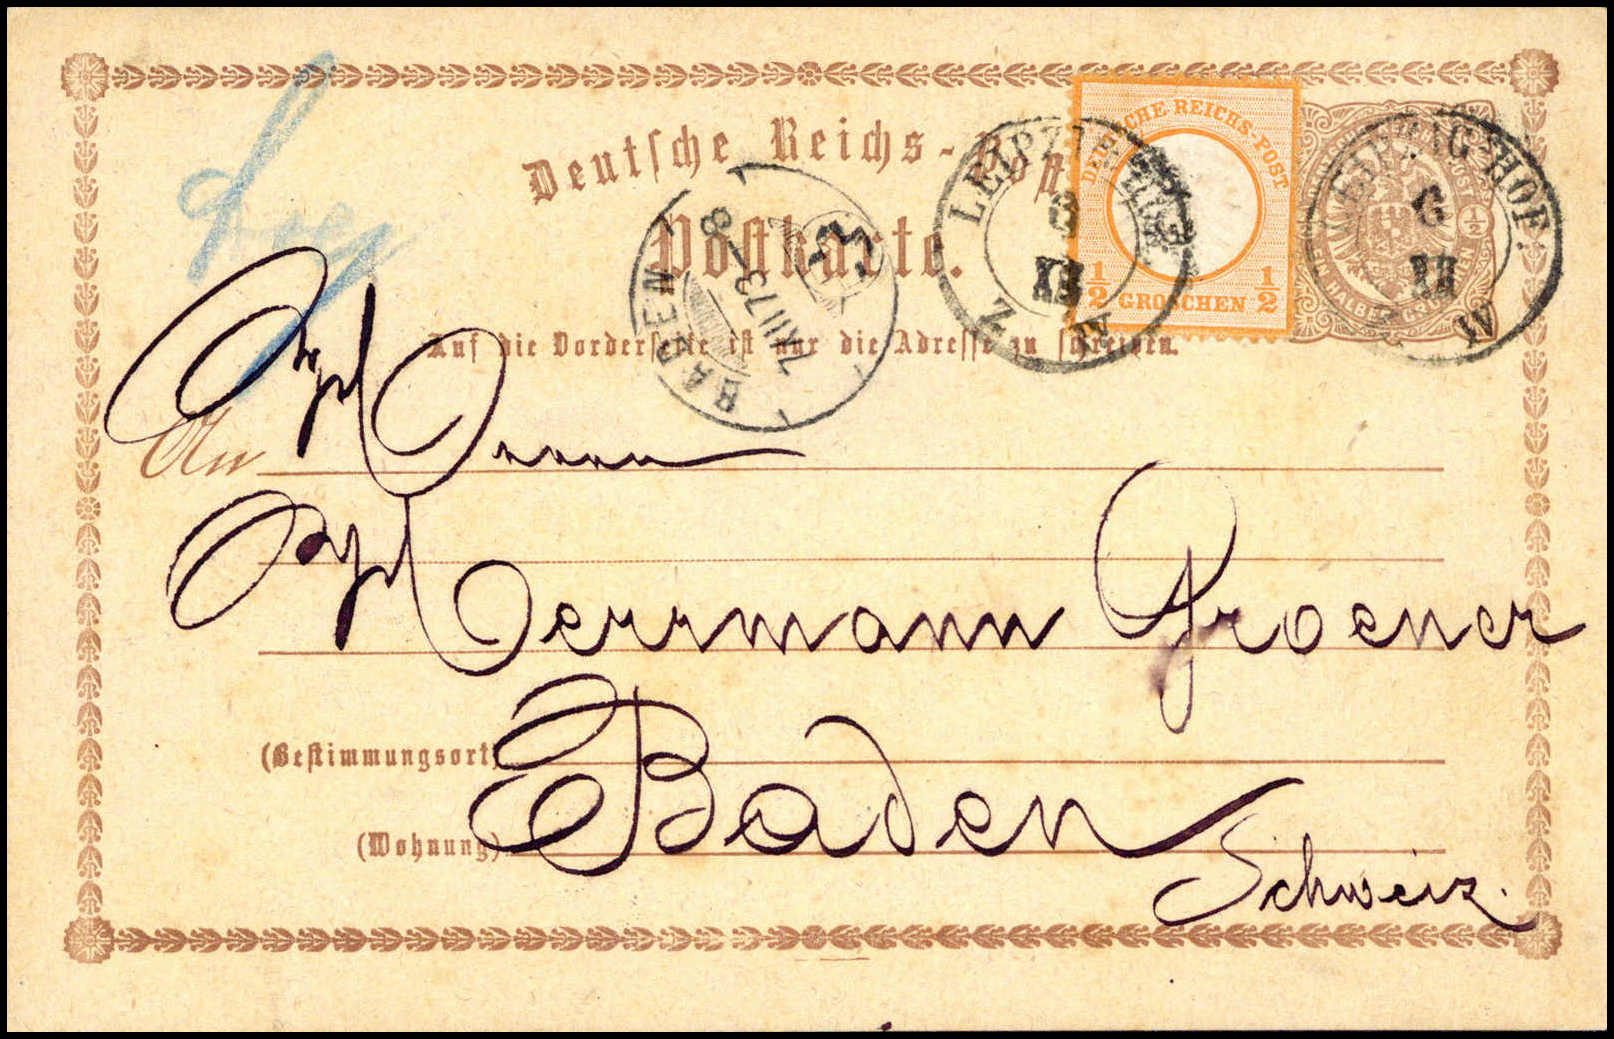 Deutsche Reichs-Post
Postkarte.
Auf die Vorderseite ist nur die Adresse zu schreiben.
DEUTSCHE·REICHS-POST
1/2 GROSCHEN 1/2
1/2
LEIPZIG
6
XII
A1
LEIPZIG-HOF.
6
XII
A1
BADEN
7 XII 73 - 8
An
Herrn
Herrmann Groener
(Bestimmungsort)
Baden
(Wohnung)
Schweiz.